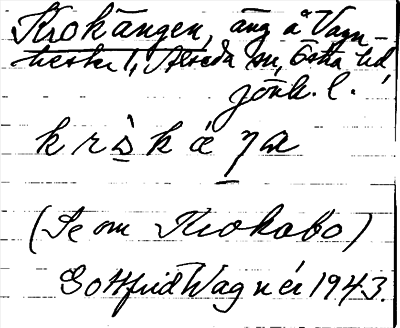 Krokängen, äng å Vagn-
hester 1, Alseda sn, Östra hd,
Jönk. l.
k r ò k æ ŋ a
(Se om Krokabo)
Gottfrid Wagnér 1943.